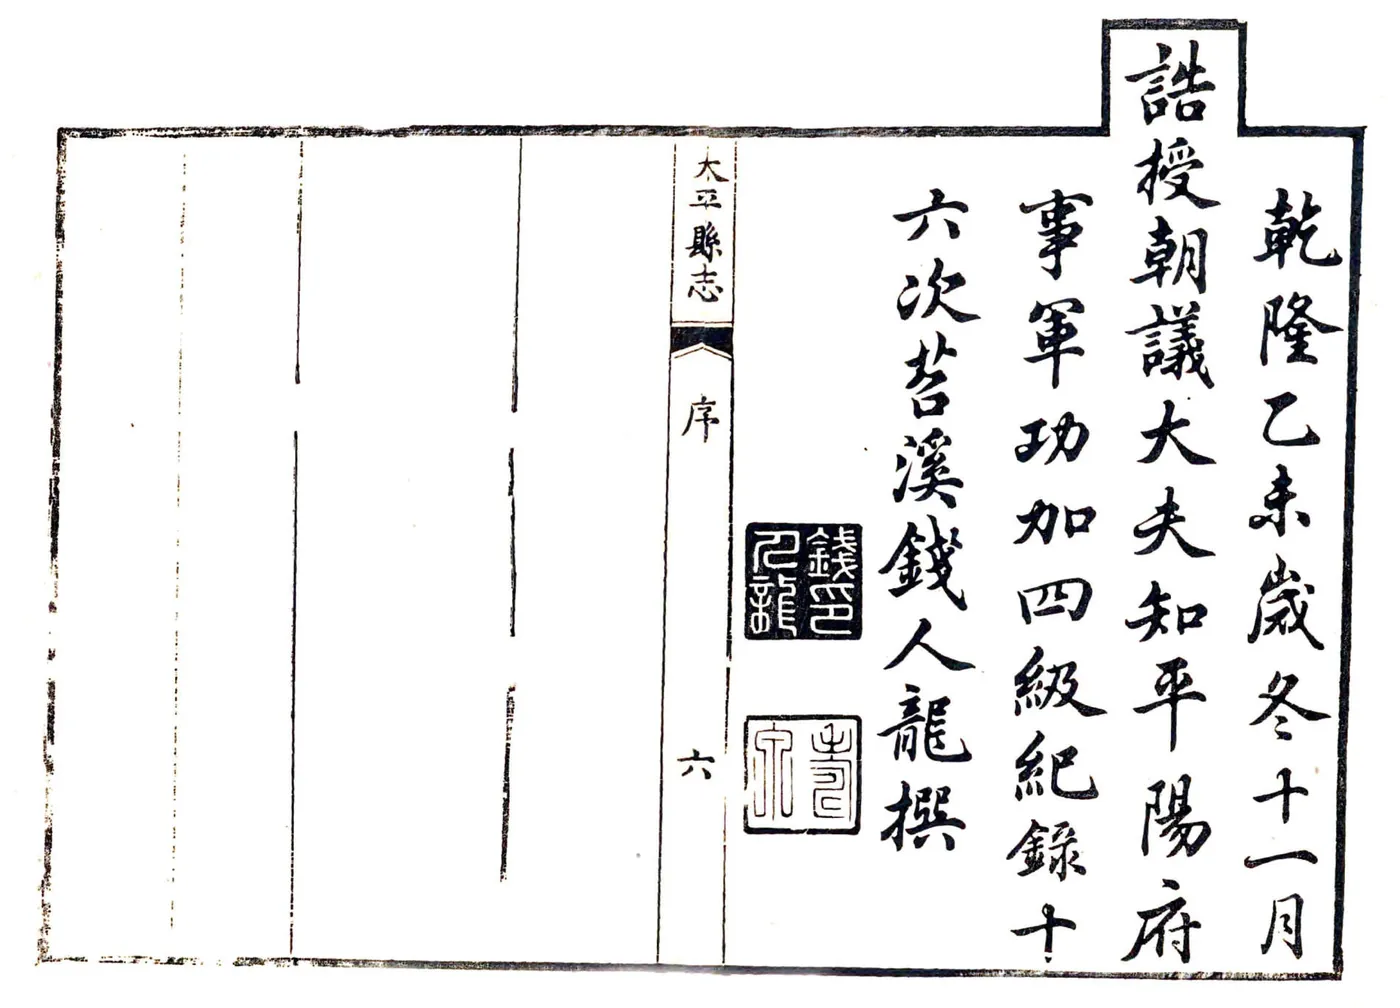 乾隆乙未歲冬十一月
誥授朝議大夫知平陽府
事軍功加四級紀錄十
六次苕溪錢人龍撰
錢印
人龍
太平縣志
序
六